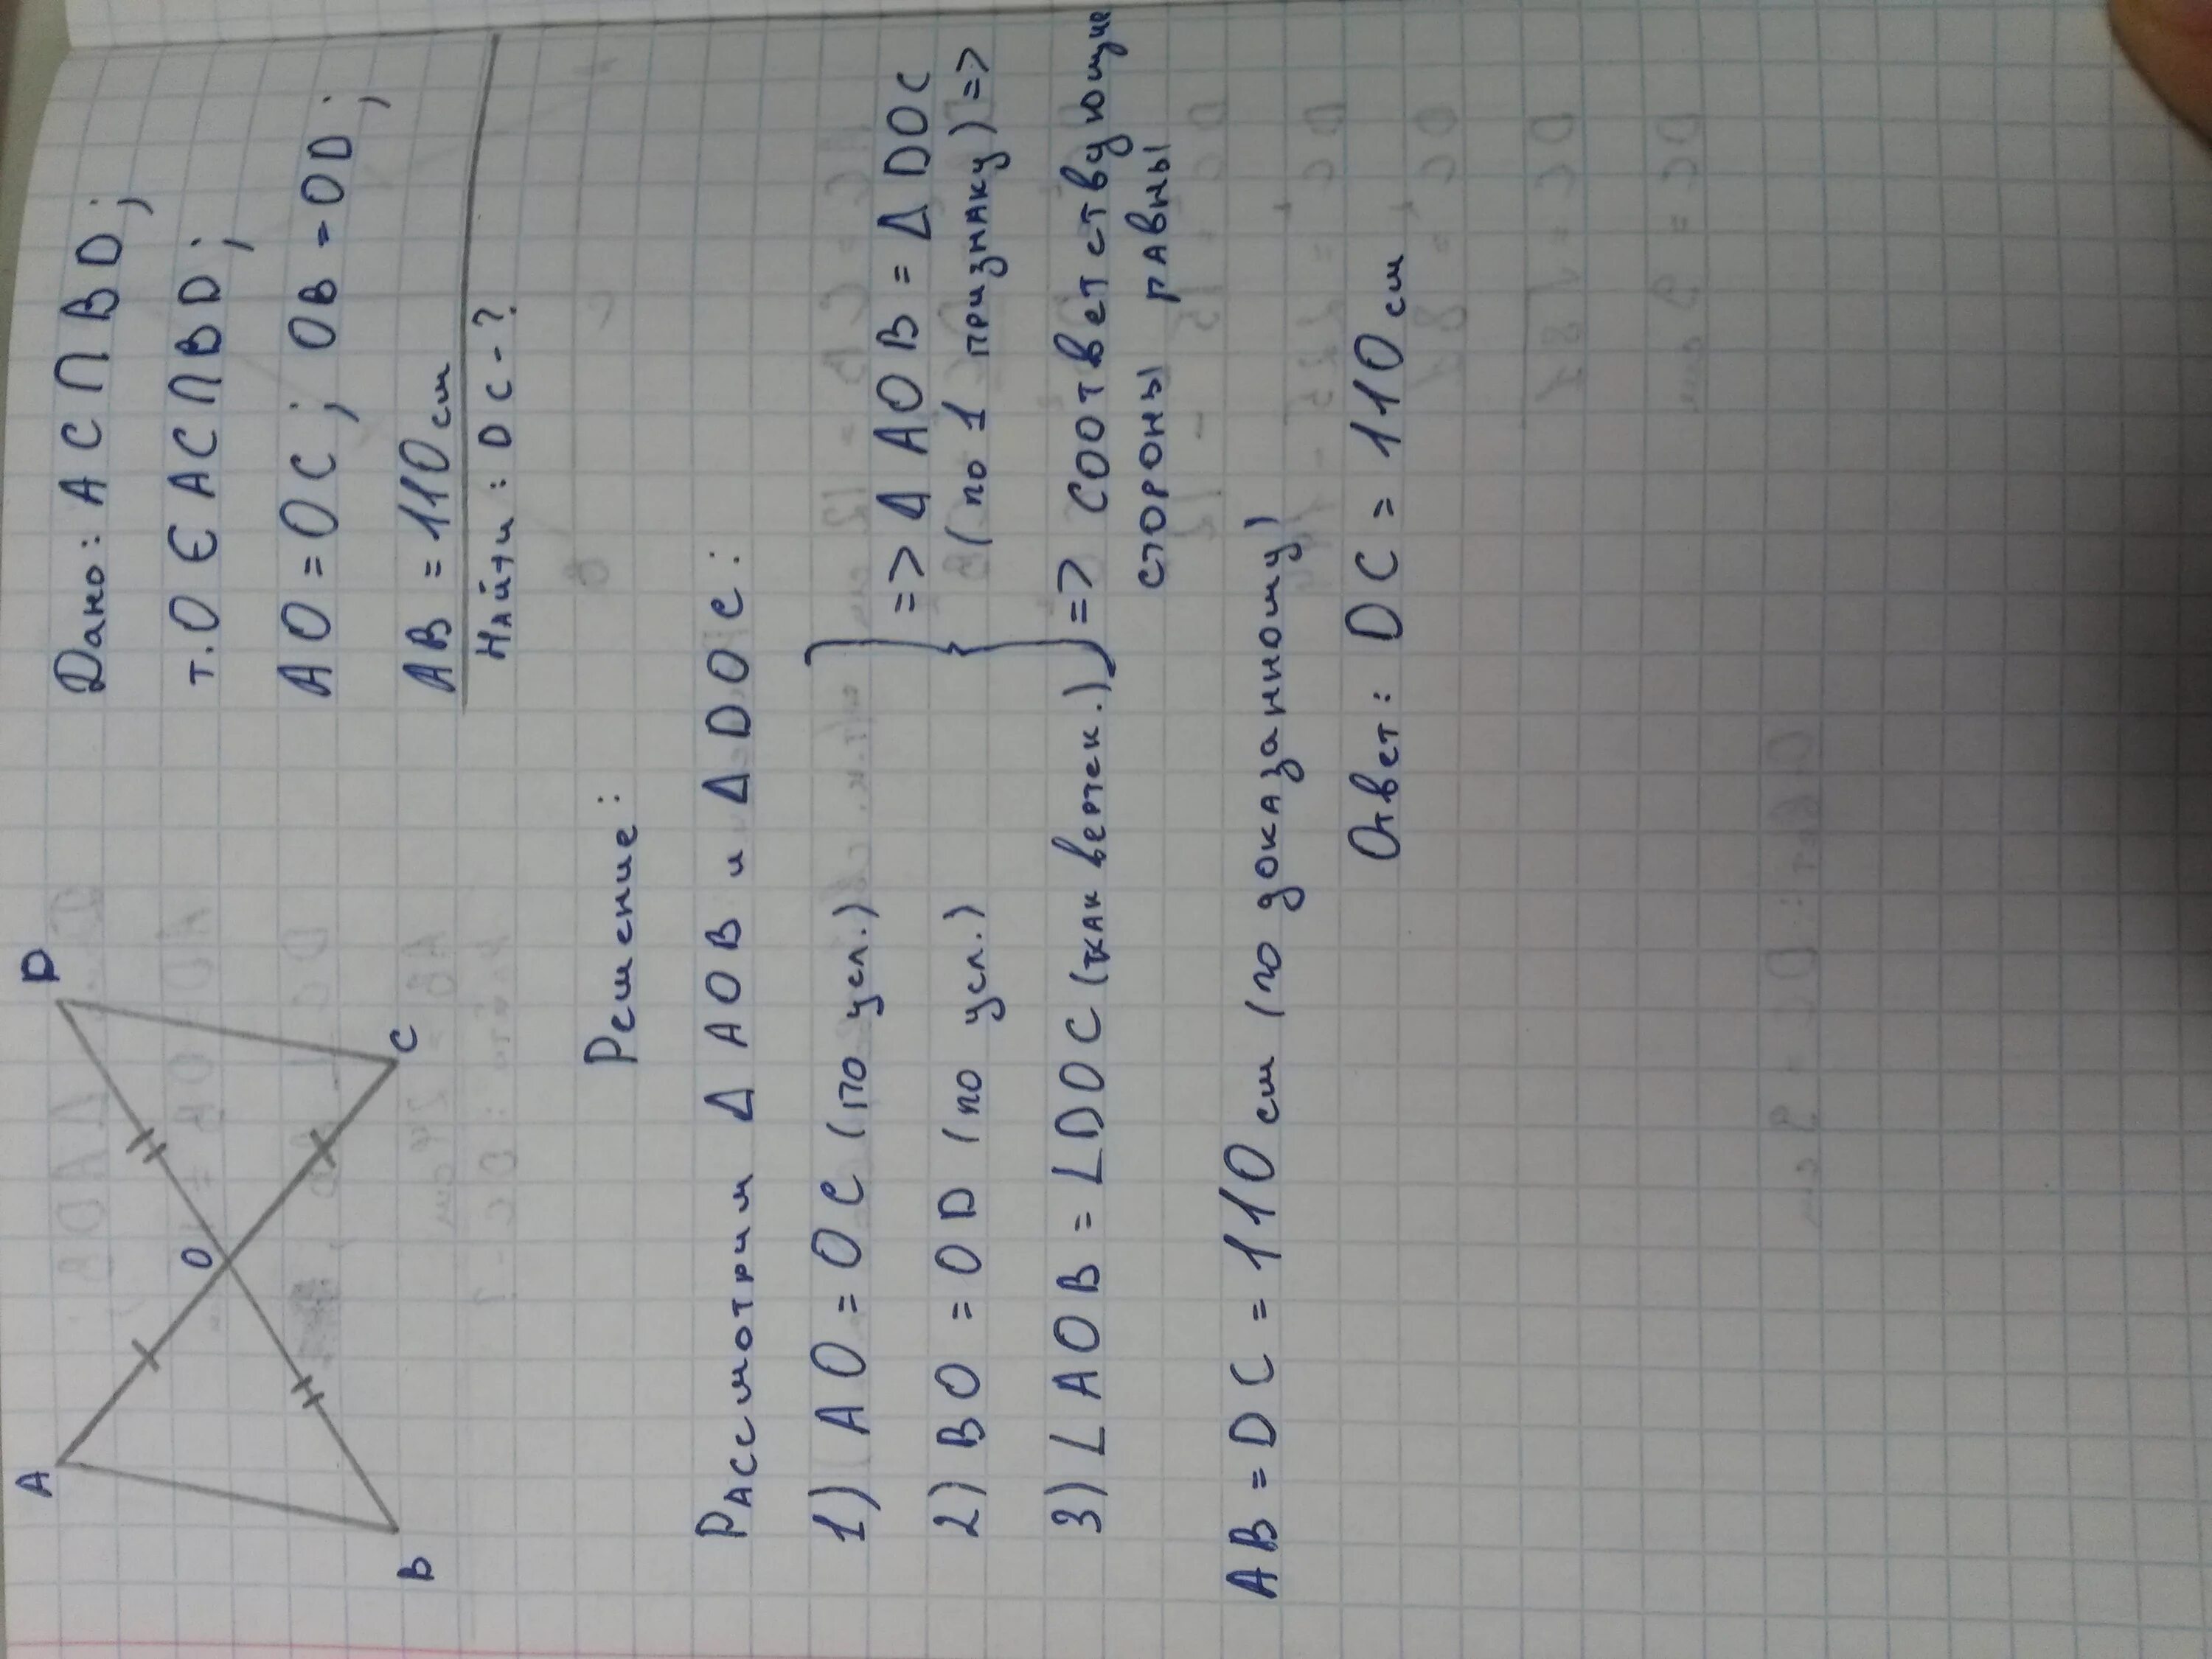 A
D
O
B
C
Дано: AC ∩ BD;
т.O ∈ AC ∩ BD;
AO = OC; OB = OD;
AB = 110 см
Найти: DC - ?
Решение:
Рассмотрим Δ AOB и Δ DOC:
1) AO = OC (по усл.)
2) BO = OD (по усл.)
3) ∠AOB = ∠DOC (как вертек.)
=> Δ AOB = Δ DOC
(по 1 признаку) =>
=> соответствующие
стороны равны
AB = DC = 110 см (по доказанному)
Ответ: DC = 110 см